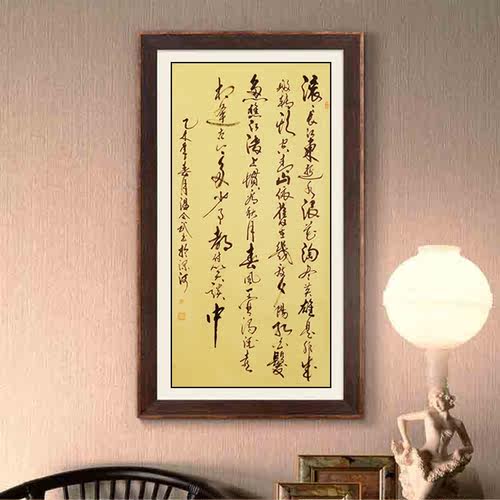 滚〻長江東逝水浪花淘尽英雄是非成
败转头空青山依舊在幾度夕陽红白髮
渔樵江渚上惯看秋月春風一壶浊酒喜
相逢古今多少事都付笑谈中
乙未年春月温